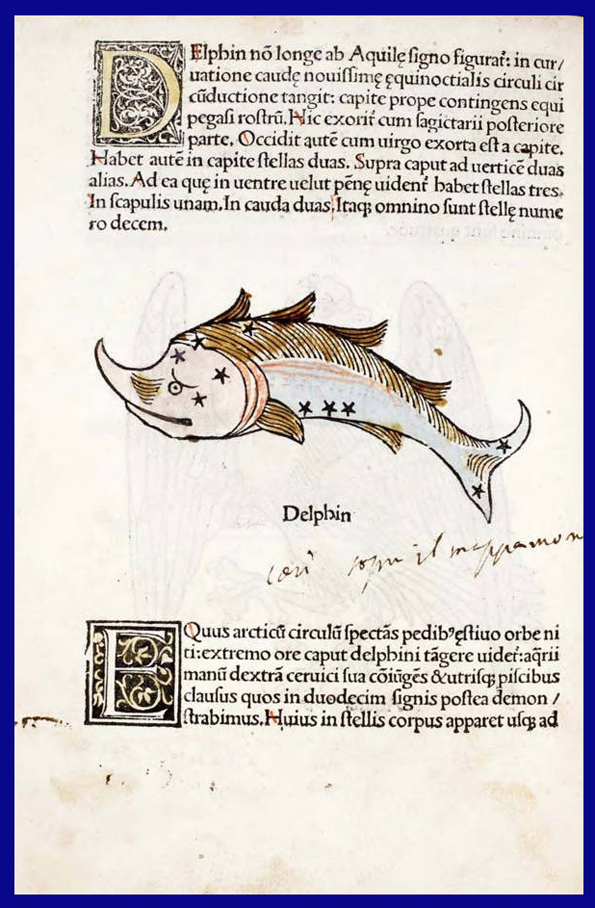 DElphin nō longe ab Aquilę signo figurať: in cur/
uatione caudę nouissimę ęquinoctialis circuli cir
cūductione tangit: capite prope contingens equi
pegasi rostrū. Hic exorit̄ cum sagictarii posteriore
parte. Occidit autē cum uirgo exorta est a capite.
Habet autē in capite stellas duas. Supra caput ad uerticē duas
alias. Ad ea quę in uentre uelut pēnę uident̄ habet stellas tres.
In scapulis unam. In cauda duas. Itaqꝫ omnino sunt stellę nume
ro decem.
Delphin
il mappamon
EQuus arcticū circulū spectās pedibꝰ ęstiuo orbe ni
ti: extremo ore caput delphini tāgere uidet̄: aq̄rii
manū dextrā ceruici sua cōiūgēs &utrisqꝫ piscibus
clausus quos in duodecim signis postea demon /
strabimus. Huius in stellis corpus apparet usqꝫ ad